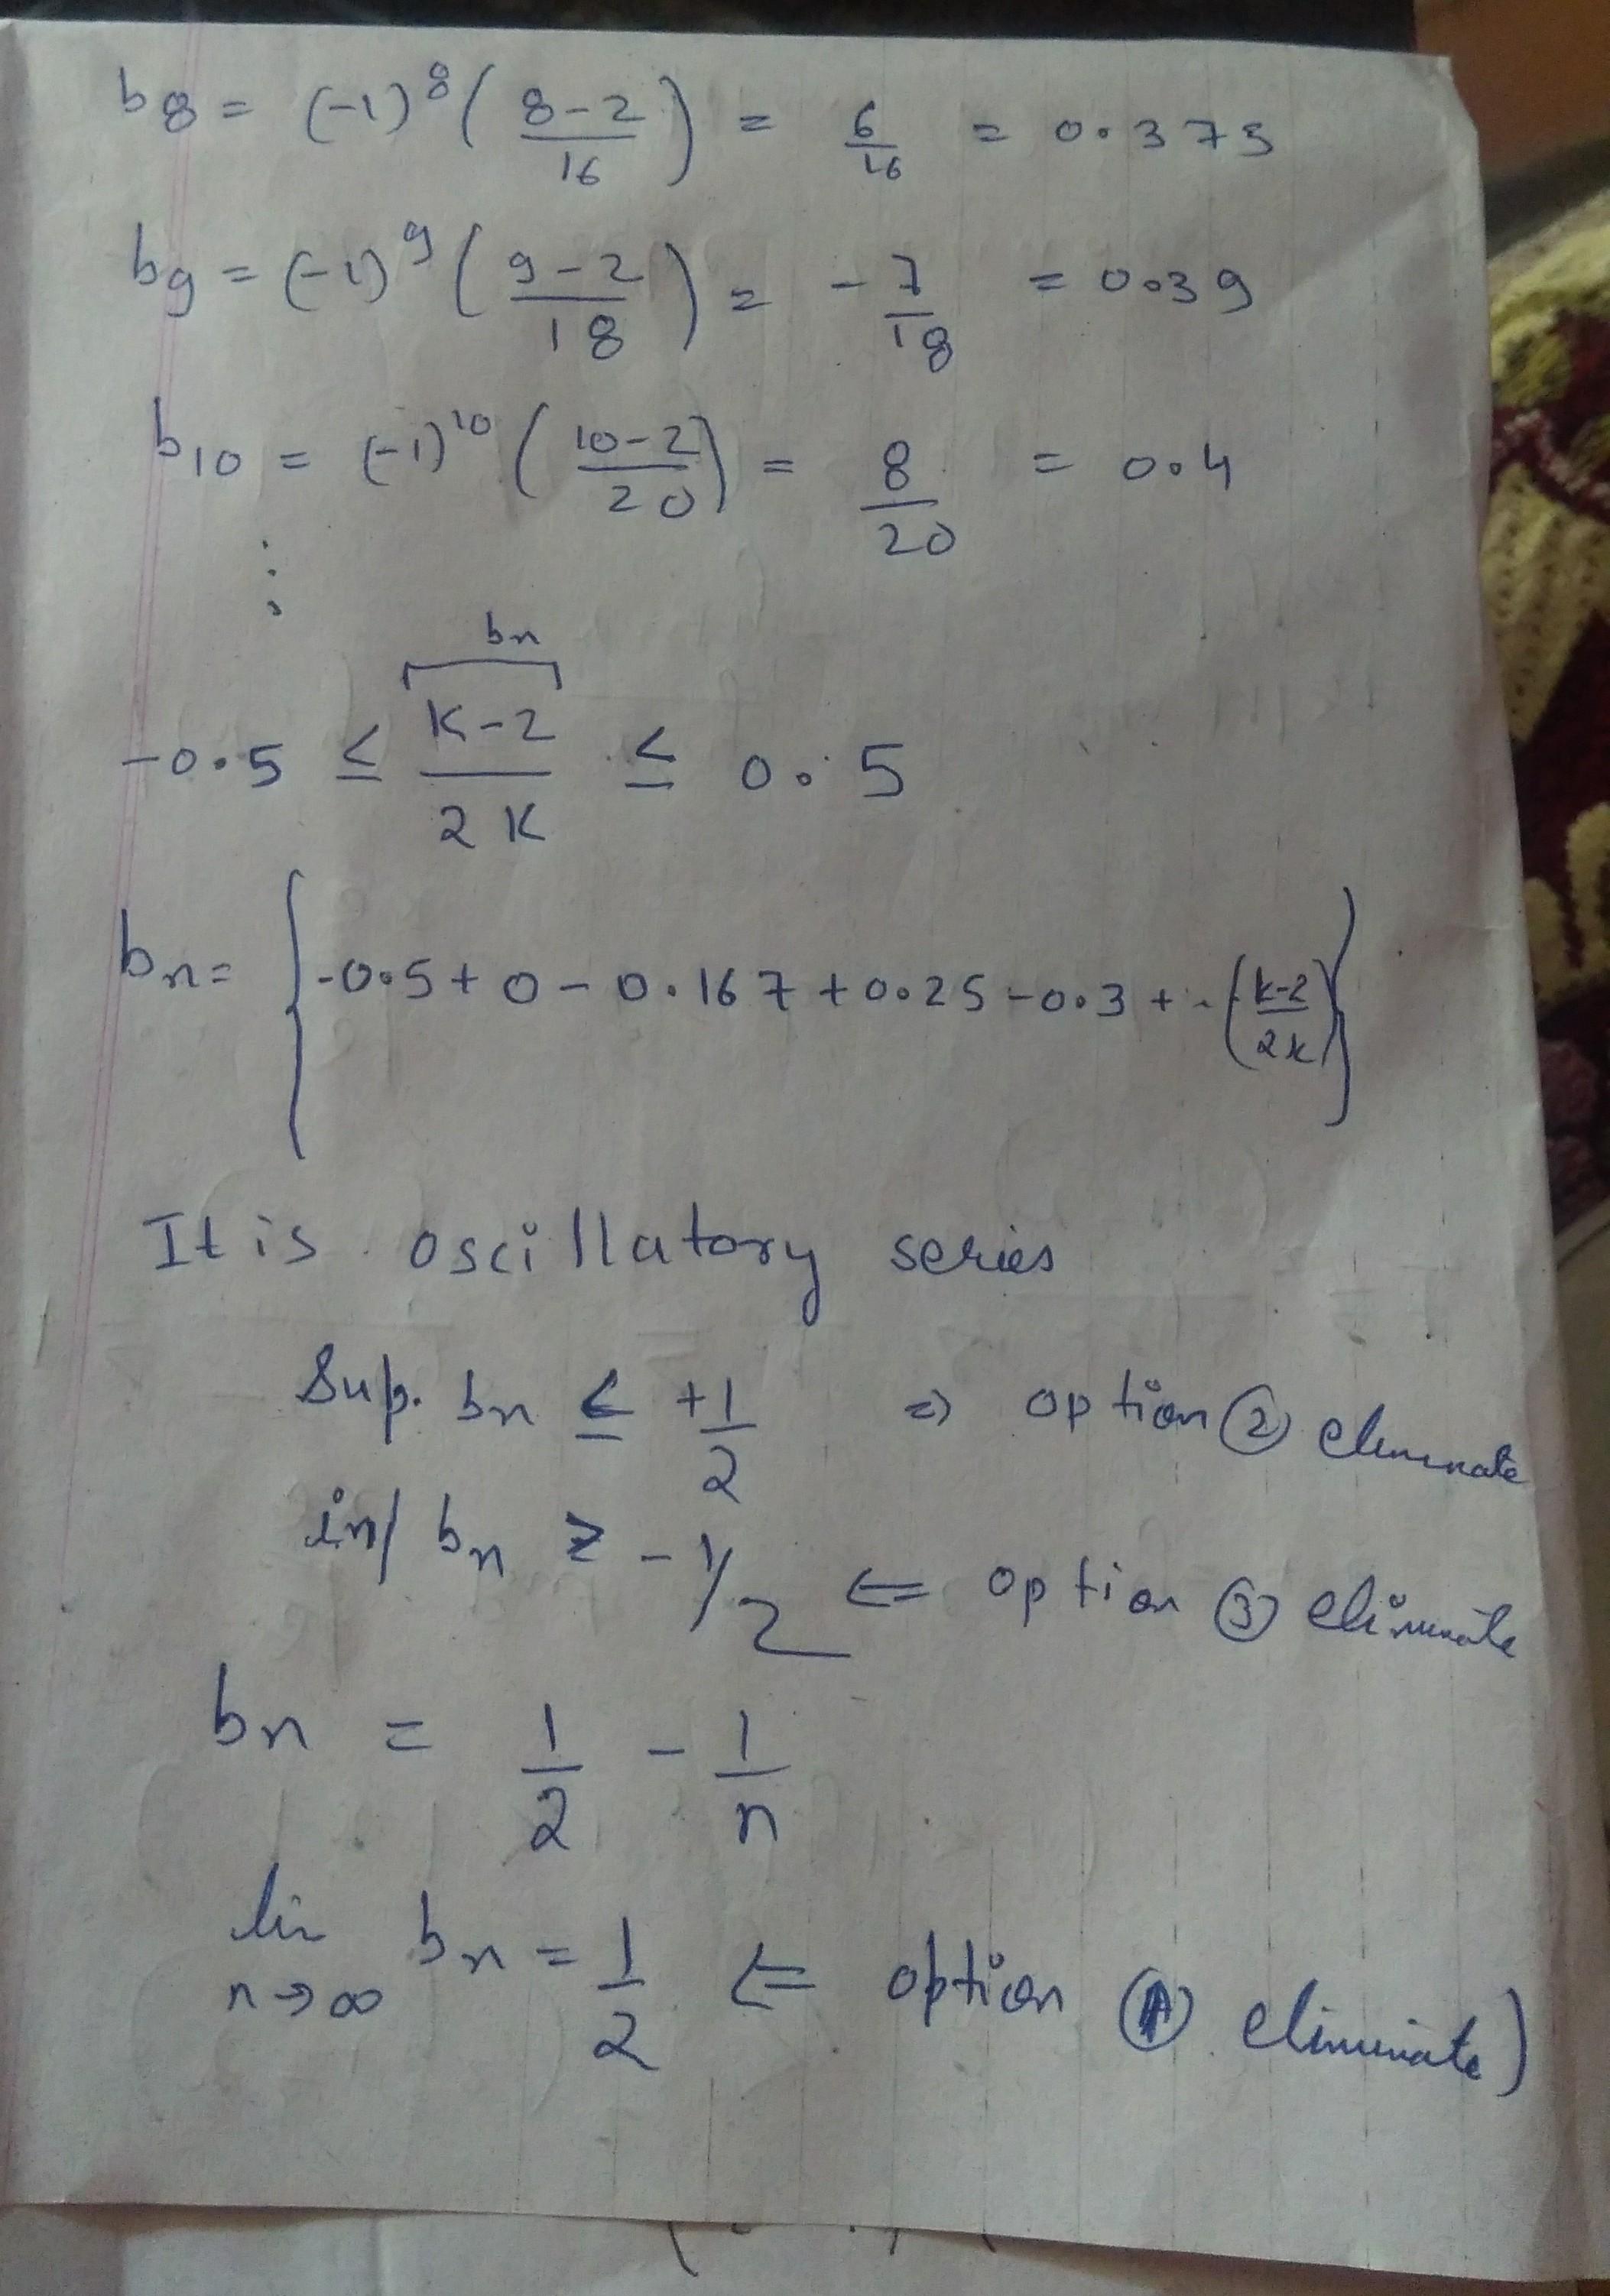 b8 = (-1)^8 ( 8-2 / 16 ) = 6/16 = 0.375
b9 = (-1)^9 ( 9-2 / 18 ) = - 7/18 = 0.39
b10 = (-1)^10 ( 10-2 / 20 ) = 8/20 = 0.4
⋮
bn
-0.5 ≤ K-2 / 2K ≤ 0.5
bn = { -0.5 + 0 - 0.167 + 0.25 - 0.3 + .. ( k-2 / 2k ) }
It is oscillatory series
Sup. bn ≤ + 1/2 ⇒ option ② eliminate
inf bn ≥ - 1/2 ⇐ option ③ eliminate
bn = 1/2 - 1/n
lim n→∞ bn = 1/2 ⇐ option eliminate)